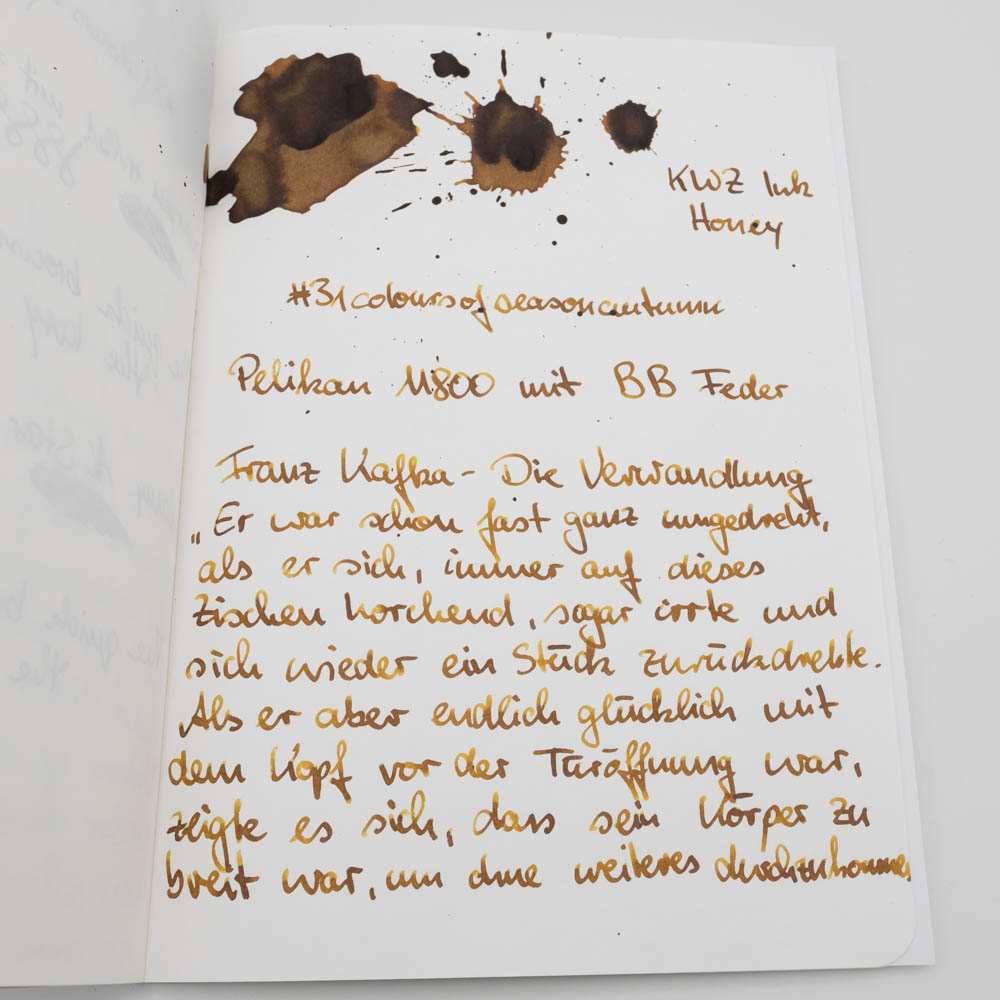 KWZ Ink
Honey
#31coloursofseasonautumn
Pelikan M800 mit BB Feder
Franz Kafka - Die Verwandlung
„Er war schon fast ganz umgedreht,
als er sich, immer auf dieses
Zischen horchend, sogar irrte und
sich wieder ein Stück zurückdrehte.
Als er aber endlich glücklich mit
dem Kopf vor der Türöffnung war,
zeigte es sich, dass sein Körper zu
breit war, um ohne weiteres durchzukommen